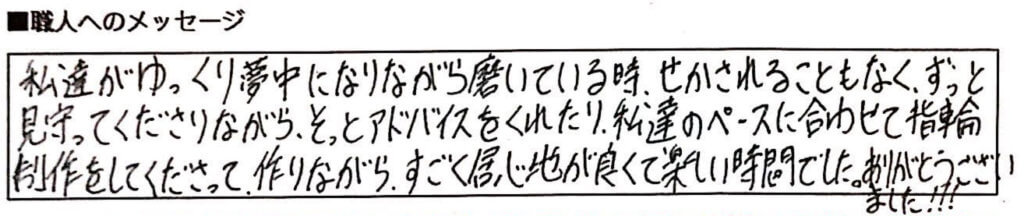 ■職人へのメッセージ
私達がゆっくり夢中になりながら磨いている時、せかされることもなく、ずっと
見守ってくださりながら、そっとアドバイスをくれたり、私達のペースに合わせて指輪
制作をしてくださって、作りながら、すごく居心地が良くて楽しい時間でした。ありがとうござい
ました!!!